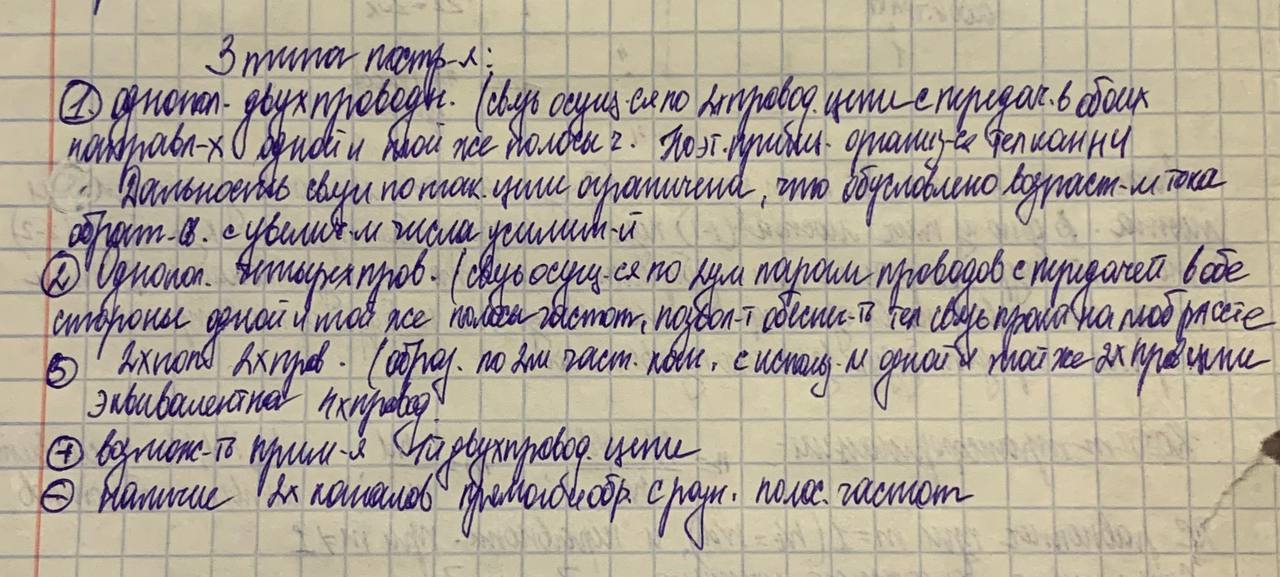 3 типа постр-я:
① однопол. двухпроводн. (связь осущ-ся по 2х провод. цепи с передач. в обоих
направл-х одной и той же полосы ч. Поэт. организ-ся тел канн ч
Дальность связи по так. цепи ограничена, что обусловлено возраст-м тока
обрат-й. с увелич-м числа усилит-й
② Однопол. четырехпров. (связь осущ-ся по 2ум парам проводов с передачей в обе
стороны одной и той же полосы частот, позвол-т обеспе-ть тел связь на люб рассте
3 2х пол 2х пров. (образ. по 2м част. с использ-м одной и той же 2х пров цепи
эквивалентна 4х провод.
⊕ возмож-ть прим-я двухпровод. цепи
⊖ наличие 2х каналов прямого и обр. с разн. полос. частот